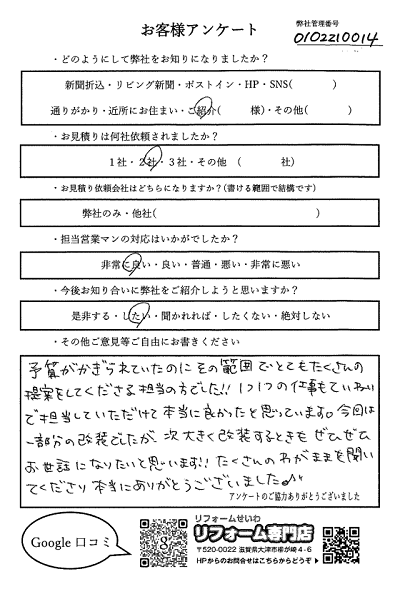 お客様アンケート
弊社管理番号
0102210014
・どのようにして弊社をお知りになりましたか？
新聞折込・リビング新聞・ポストイン・HP・SNS(　　　)
通りがかり・近所にお住まい・ご紹介(　　　様)・その他(　　　)
・お見積りは何社依頼されましたか？
1社・2社・3社・その他　(　　　社)
・お見積り依頼会社はどちらになりますか？(書ける範囲で結構です)
弊社のみ・他社(　　　)
・担当営業マンの対応はいかがでしたか？
非常に良い・良い・普通・悪い・非常に悪い
・今後お知り合いに弊社をご紹介しようと思いますか？
是非する・したい・聞かれれば・したくない・絶対しない
・その他ご意見等ご自由にお書きください
予算がかぎられていたのにその範囲でとてもたくさんの
提案をしてくださる担当の方でした!! 1つ1つの仕事もていねい
で担当していただけて本当に良かったと思っています。今回は
一部分の改装でしたが、次大きく改装するときもぜひぜひ
お世話になりたいと思います!! たくさんのわがままを聞い
てくださり本当にありがとうございました。
アンケートのご協力ありがとうございました
Google 口コミ
リフォームせいわ
リフォーム専門店
〒520-0022 滋賀県大津市柳が崎4-6
HPからのお問合せはこちらからどうぞ